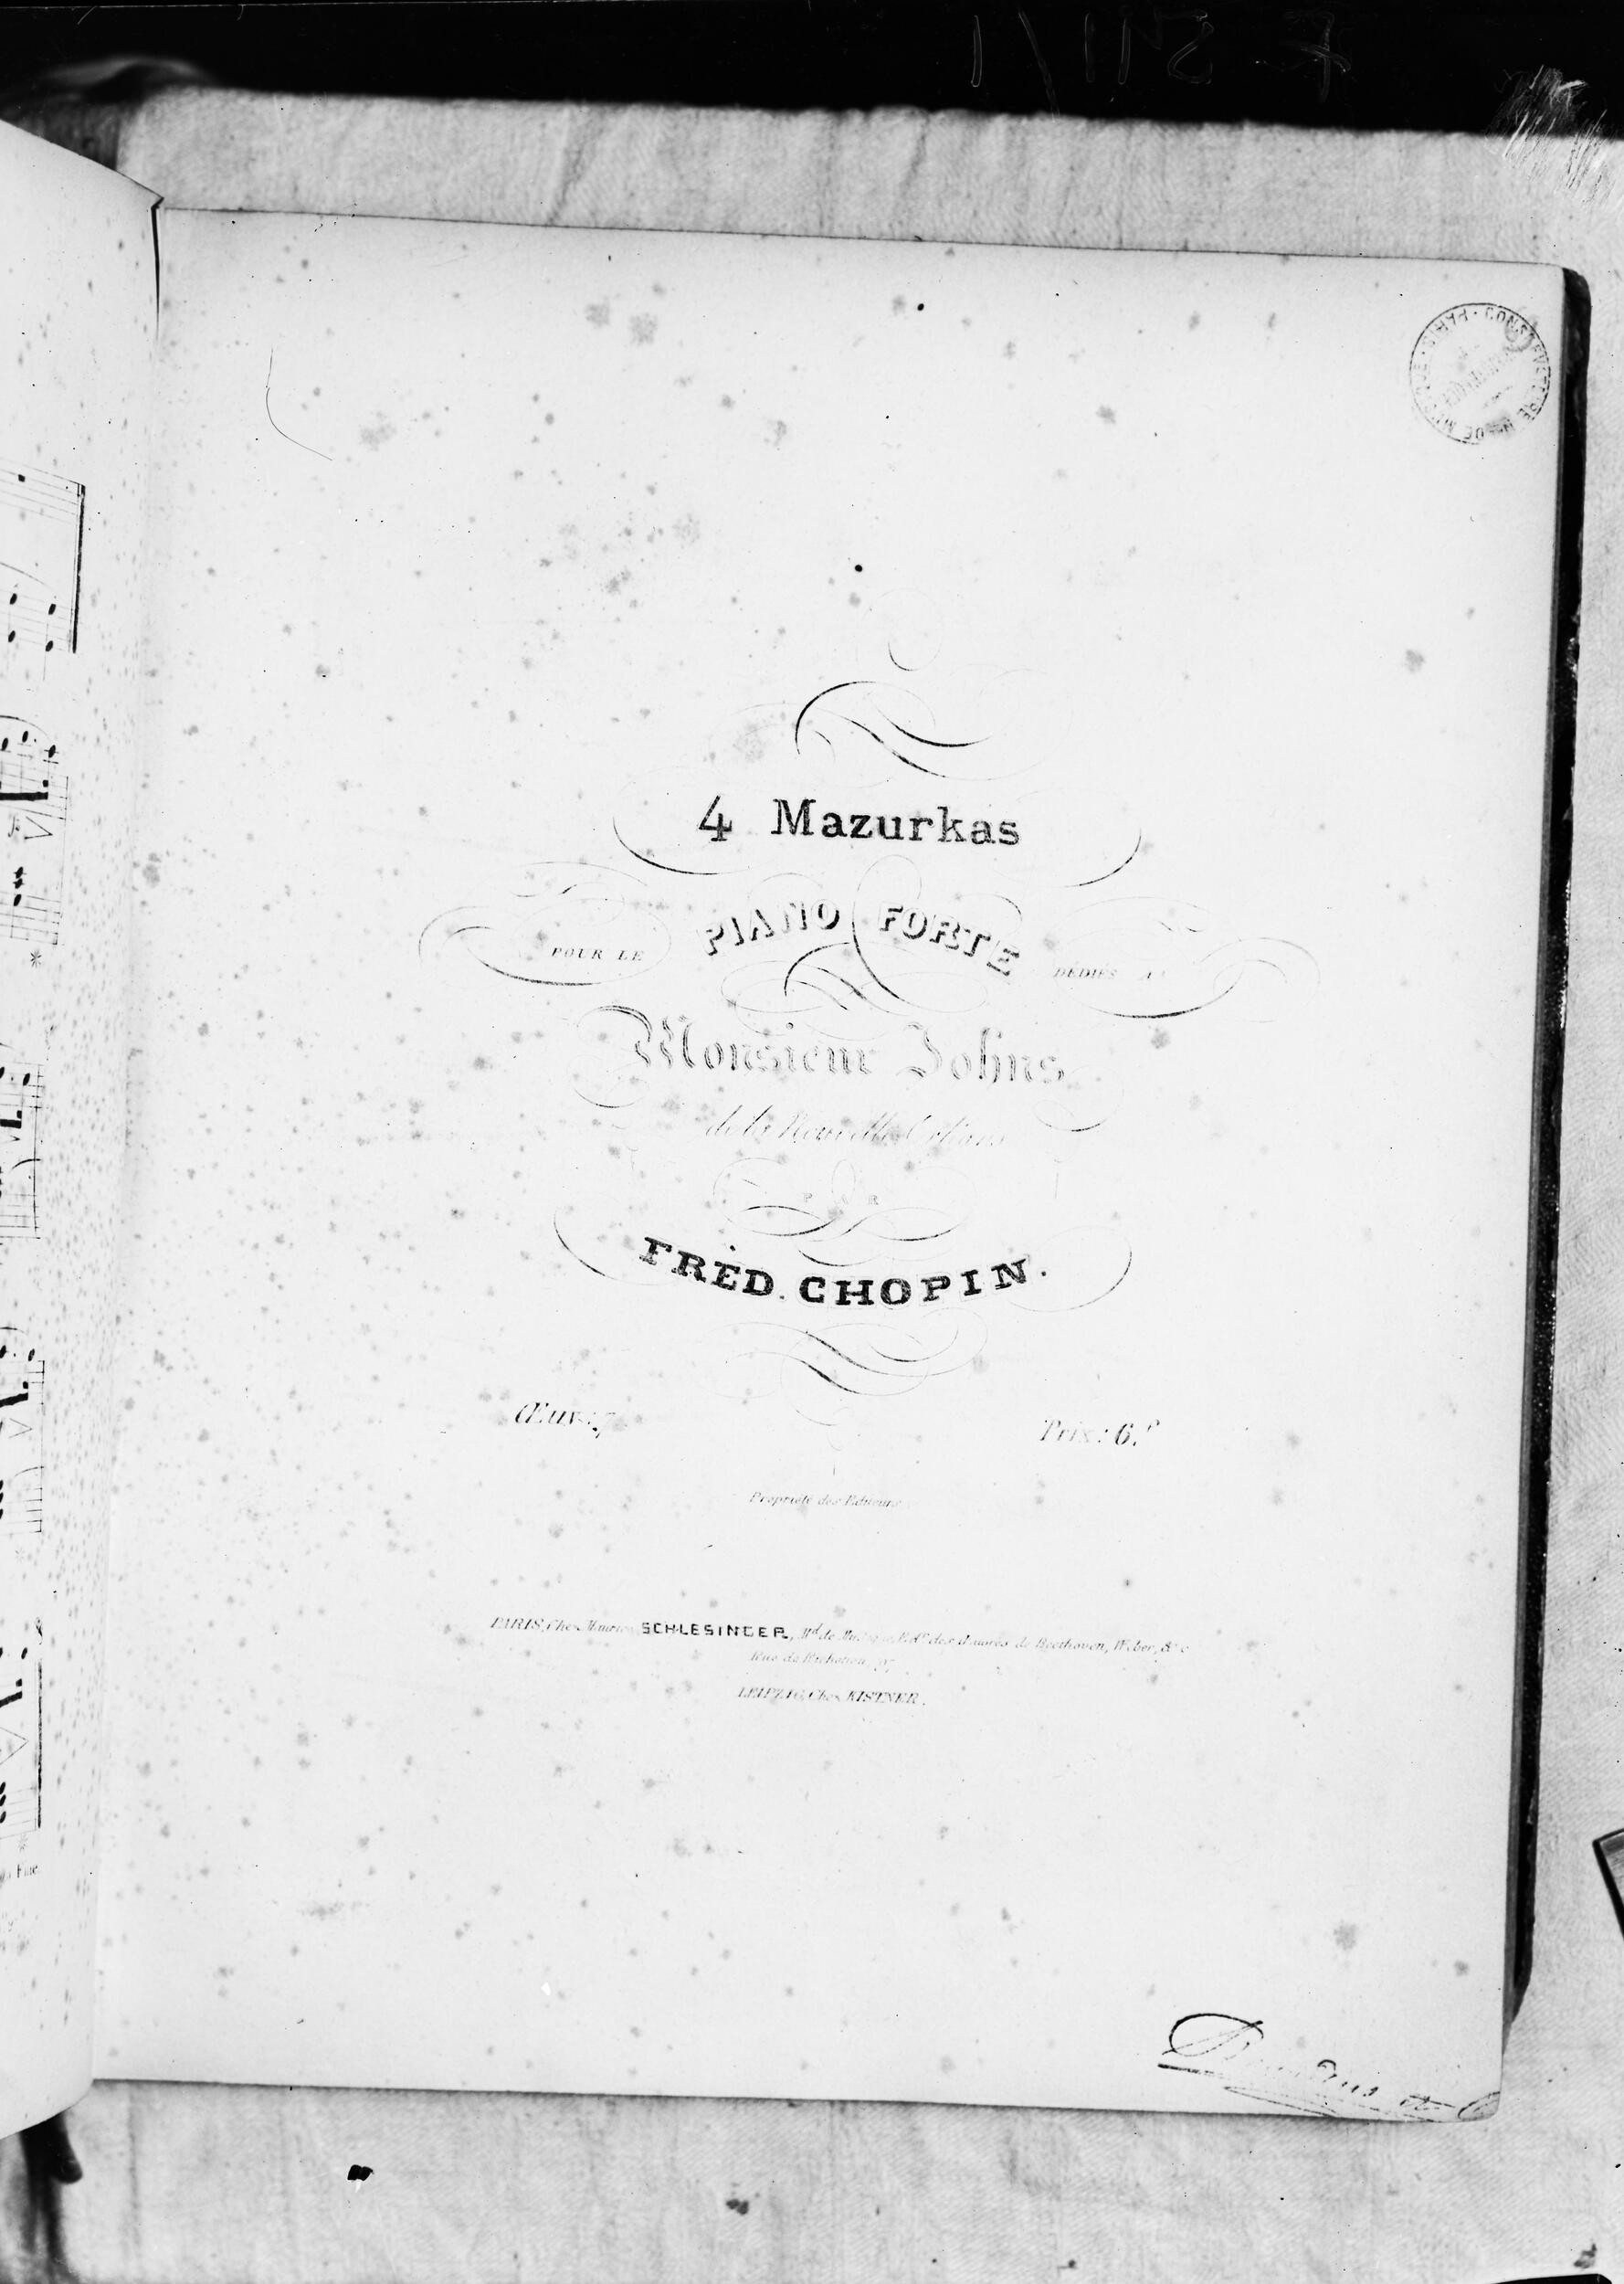 4 Mazurkas
POUR LE PIANO FORTE DÉDIÉS A
Monsieur Johns
de la Nouvelle Orléans
PAR
FRÉD. CHOPIN.
Œuv: 7 Prix: 6.f
Propriété des Editeurs
PARIS, Chez Maurice SCHLESINGER, Md. de Musique Edr. des Œuvres de Beethoven, Weber, &c
Rue de Richelieu, 97
LEIPZIG, Chez KISTNER.
Fine.